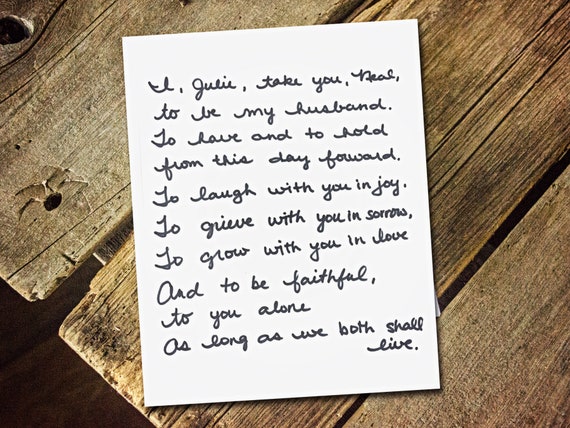 I, Julie, take you, Neal,
to be my husband.
To have and to hold
from this day forward.
To laugh with you in joy.
To grieve with you in sorrow,
To grow with you in love
And to be faithful,
to you alone
As long as we both shall
live.